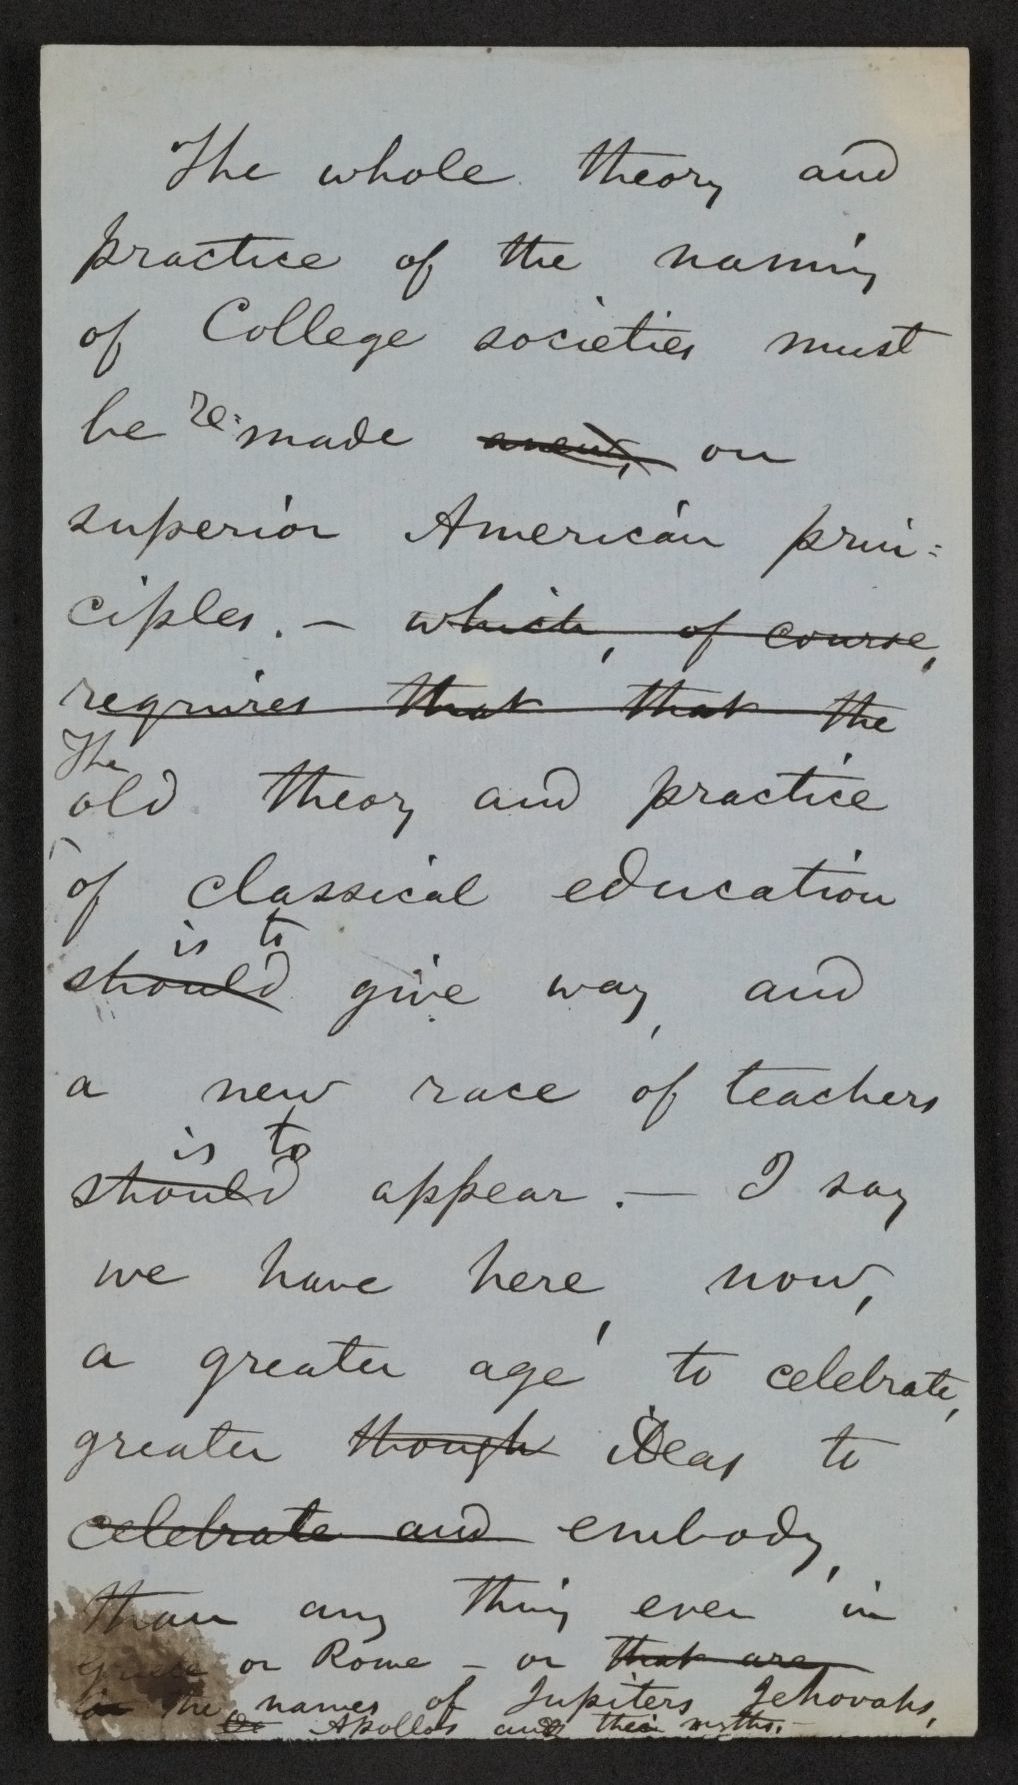 The whole theory and
practice of the naming
of College societies must
be re-made anew, on
superior American prin-
ciples. — which, of course,
requires that that the
The
old theory and practice
of classical education
is to
should give way, and
a new race of teachers
is to
should appear. — I say
we have here, now,
a greater age to celebrate,
greater though ideas to
celebrate and embody,
than any thing ever in
Greece or Rome – or that are
in the names of Jupiters, Jehovahs,
or Apollos and their myths. –